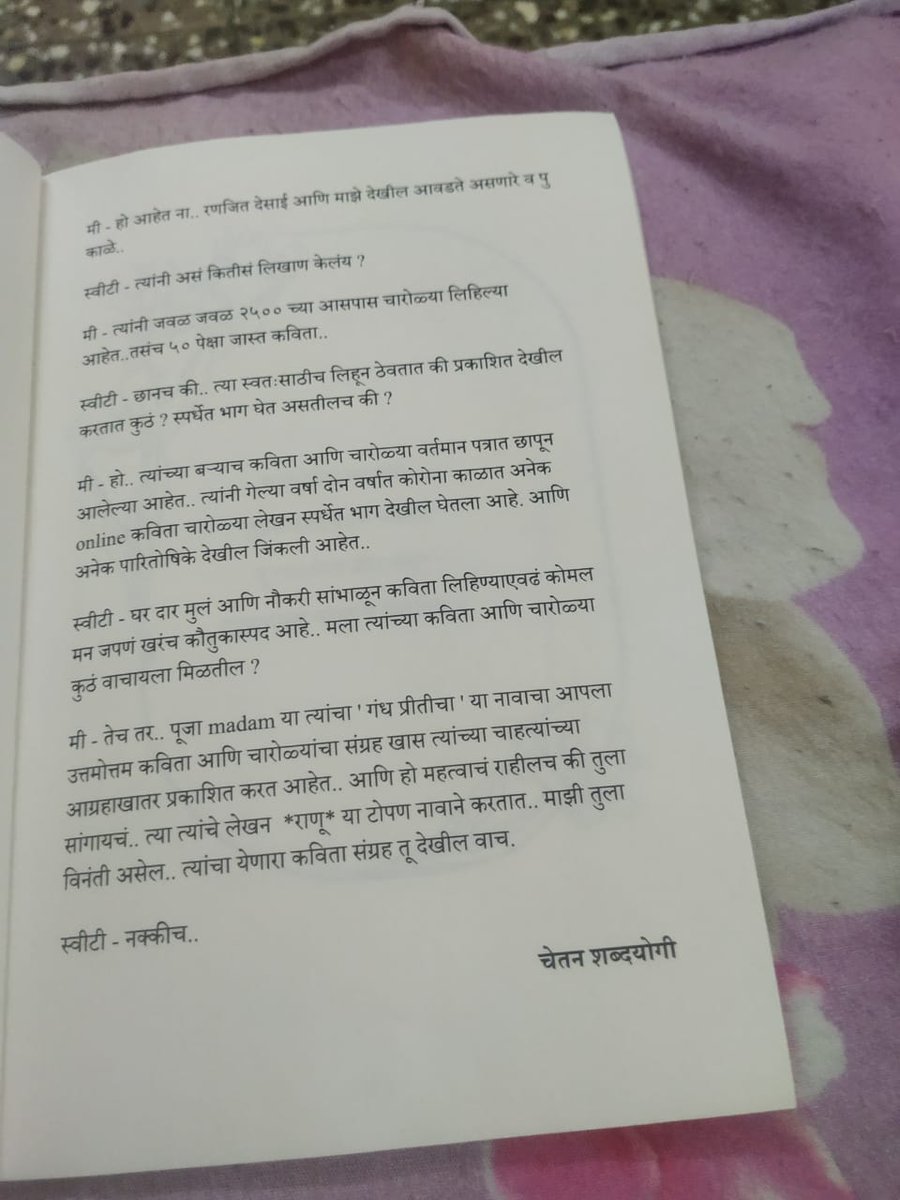 मी - हो आहेत ना.. रणजित देसाई आणि माझे देखील आवडते असणारे व पु
काळे..
स्वीटी - त्यांनी असं कितीसं लिखाण केलंय ?
मी - त्यांनी जवळ जवळ २५०० च्या आसपास चारोळ्या लिहिल्या
आहेत..तसंच ५० पेक्षा जास्त कविता..
स्वीटी - छानच की.. त्या स्वतःसाठीच लिहून ठेवतात की प्रकाशित देखील
करतात कुठं ? स्पर्धेत भाग घेत असतीलच की ?
मी - हो.. त्यांच्या बऱ्याच कविता आणि चारोळ्या वर्तमान पत्रात छापून
आलेल्या आहेत.. त्यांनी गेल्या वर्षा दोन वर्षात कोरोना काळात अनेक
online कविता चारोळ्या लेखन स्पर्धेत भाग देखील घेतला आहे. आणि
अनेक पारितोषिके देखील जिंकली आहेत..
स्वीटी - घर दार मुलं आणि नौकरी सांभाळून कविता लिहिण्याएवढं कोमल
मन जपणं खरंच कौतुकास्पद आहे.. मला त्यांच्या कविता आणि चारोळ्या
कुठं वाचायला मिळतील ?
मी - तेच तर.. पूजा madam या त्यांचा ' गंध प्रीतीचा ' या नावाचा आपला
उत्तमोत्तम कविता आणि चारोळ्यांचा संग्रह खास त्यांच्या चाहत्यांच्या
आग्रहाखातर प्रकाशित करत आहेत.. आणि हो महत्वाचं राहीलच की तुला
सांगायचं.. त्या त्यांचे लेखन *राणू* या टोपण नावाने करतात.. माझी तुला
विनंती असेल.. त्यांचा येणारा कविता संग्रह तू देखील वाच.
स्वीटी - नक्कीच..
चेतन शब्दयोगी